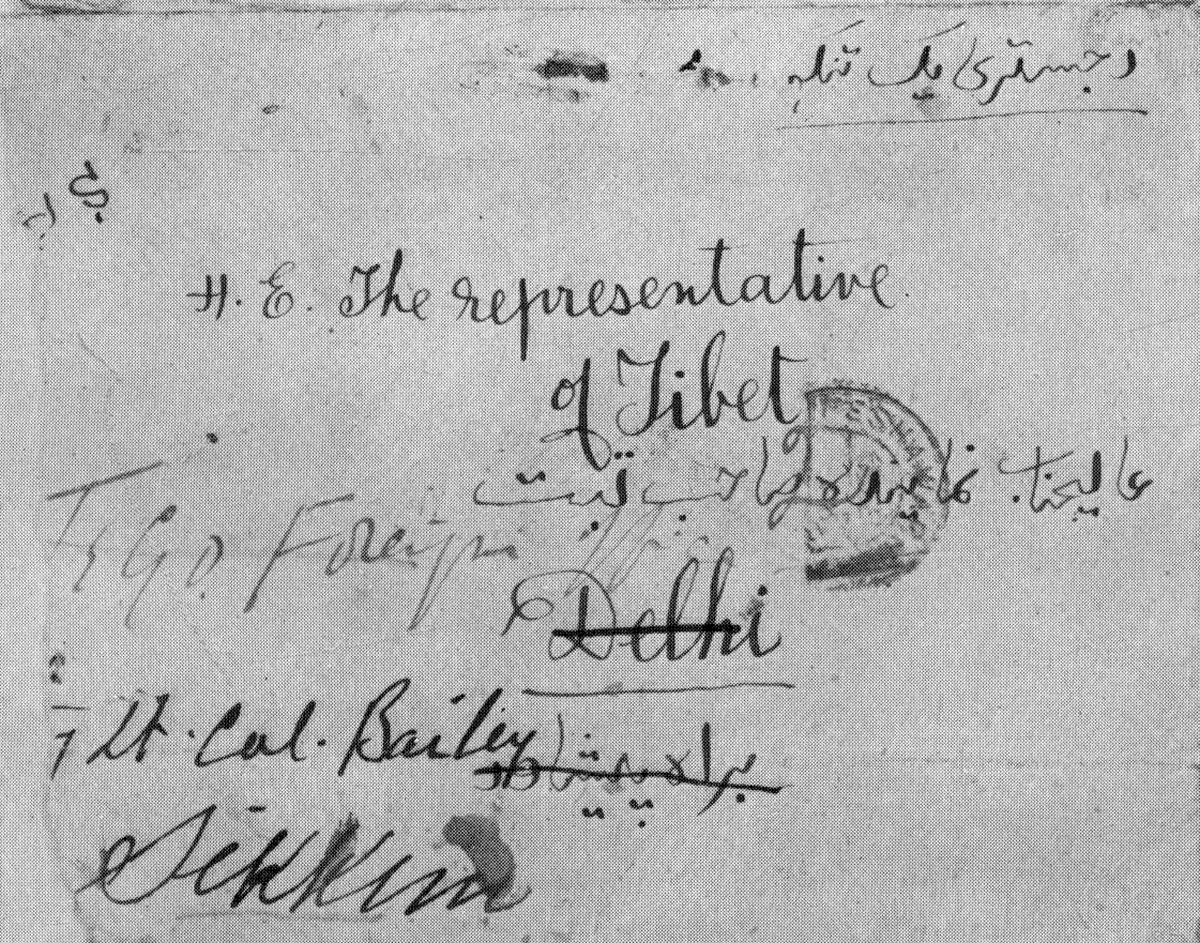 رجستری یک تنگه
H. E. The representative
of Tibet
عالیجناب نماینده صاحب تبت
Foreign
Delhi
Lt. Col. Bailey
براه پشاور
Sikkim